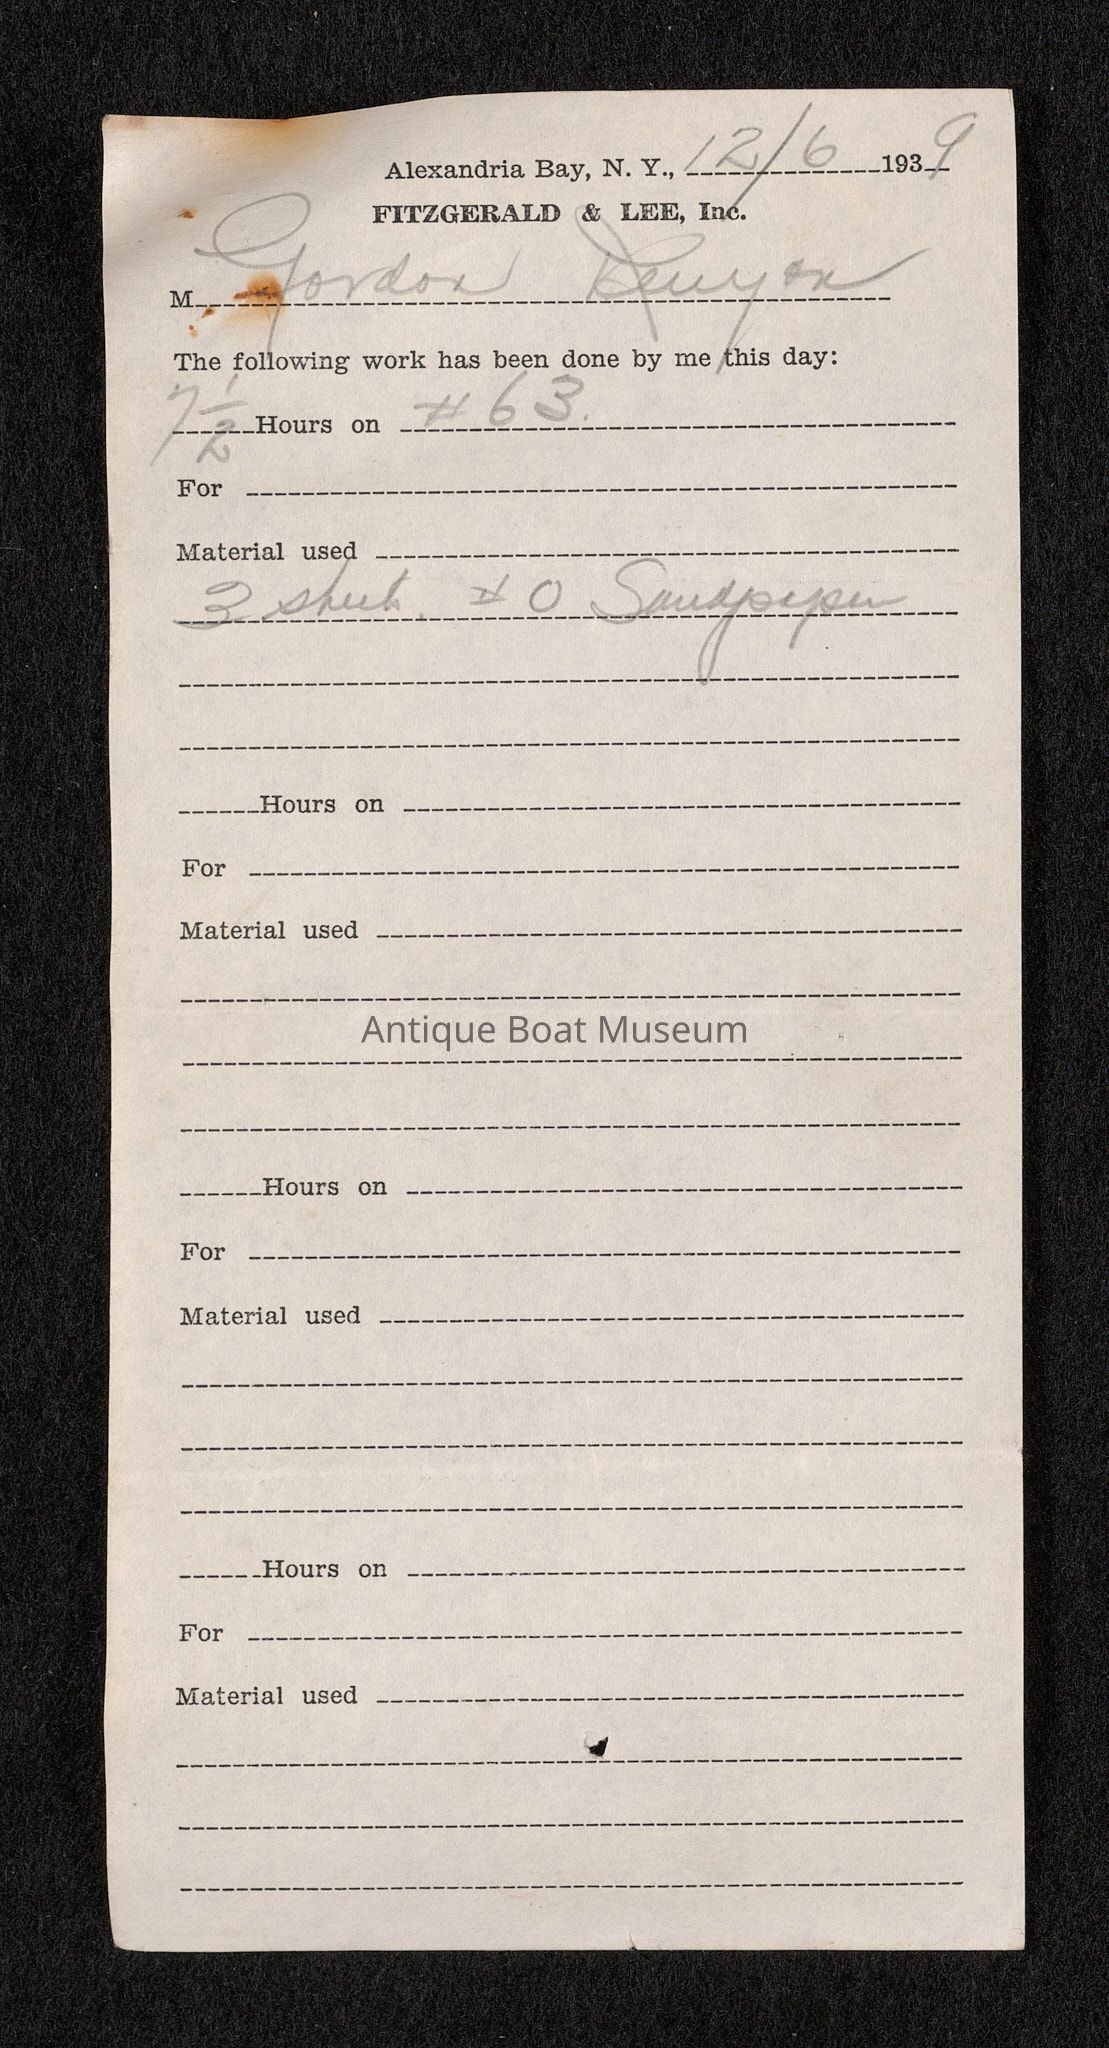 Alexandria Bay, N. Y., 12/6 1939
FITZGERALD & LEE, Inc.
M Gordon Kenyon
The following work has been done by me this day:
7 1/2 Hours on # 63.
For
Material used
3 sheets. # 0 Sandpaper
Hours on
For
Material used
Antique Boat Museum
Hours on
For
Material used
Hours on
For
Material used